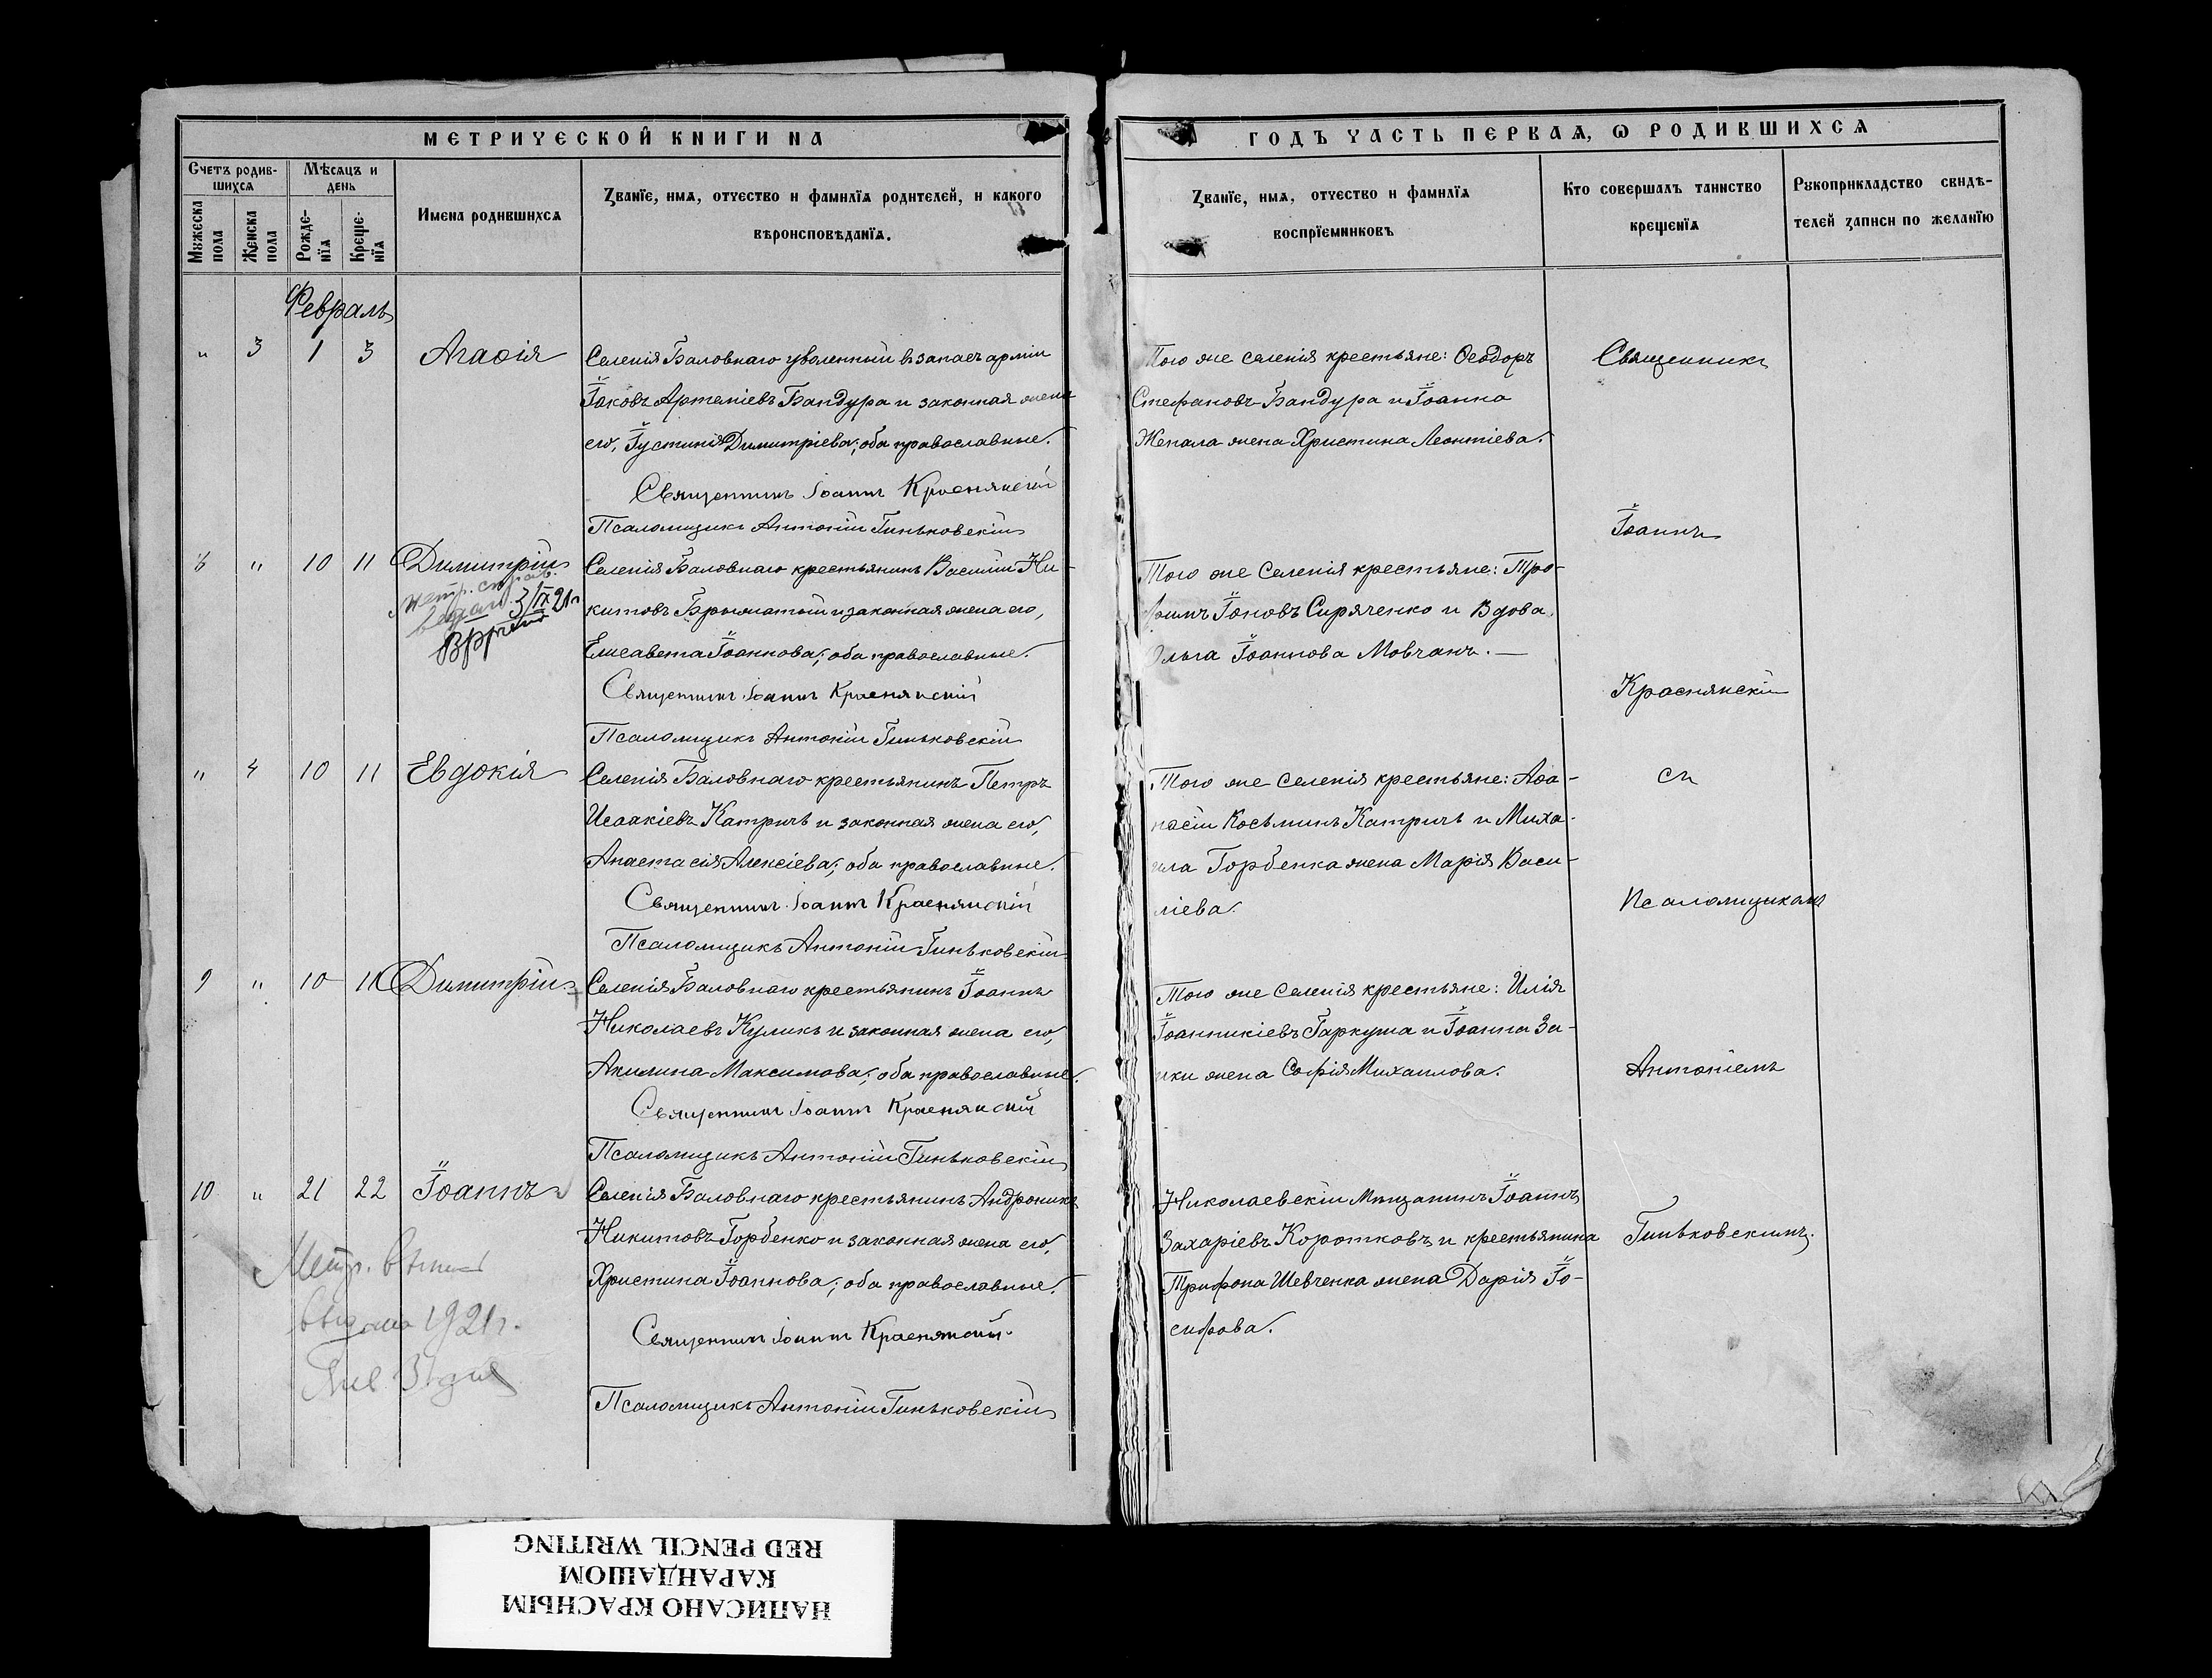 МЕТРИЧЕСКОЙ КНИГИ НА
Счетъ родив-
шихся
Мѣсяцъ и
день
Мужеска
пола
Женска
пола
Рожде-
нїя
Креще-
нїя
Имена родившихся
Званїе, имя, отчество и фамилїя родителей, и какого
вѣроисповѣданїя.
Февраль
" 3 1 3 Агафія
Селенія Баловнаго уволенный въ запасъ арміи
Іаковъ Артеміевъ Бандура и законная жена
его, Іустинія Димитріева; оба православные.
Священникъ Іоаннъ Краснянскій
Псаломщикъ Антоній Гиньковскій
8 " 10 11 Димитрій
Метр. справ.
выдан. 3/IX 21 г
Селенія Баловнаго крестьянинъ Василій Ни-
китовъ и законная жена его,
Елисавета Іоаннова; оба православные.
Священникъ Іоаннъ Краснянскій
Псаломщикъ Антоній Гиньковскій
" 4 10 11 Евдокія
Селенія Баловнаго крестьянинъ Петръ
Исаакіевъ Катричъ и законная жена его,
Анастасія Алексіева; оба православные.
Священникъ Іоаннъ Краснянскій
Псаломщикъ Антоній Гиньковскій
9 " 10 11 Димитрій
Селенія Баловнаго крестьянинъ Іоаннъ
Николаевъ Куликъ и законная жена его,
Акилина Максимова; оба православные.
Священникъ Іоаннъ Краснянскій
Псаломщикъ Антоній Гиньковскій
10 " 21 22 Іоаннъ
Метр. выпись
выдана 1921 г.
Янв 31 дня
Селенія Баловнаго крестьянинъ Андроникъ
Никитовъ Горбенко и законная жена его,
Христина Іоаннова; оба православные.
Священникъ Іоаннъ Краснянскій
Псаломщикъ Антоній Гиньковскій
ГОДЪ ЧАСТЬ ПЕРВАЯ, Ѡ РОДИВШИХСЯ
Званїе, имя, отчество и фамилїя
воспрїемниковъ
Кто совершалъ таинство
крещенїя
Рукоприкладство свидѣ-
телей записи по желанїю
Того же селенія крестьяне: Ѳеодоръ
Стефановъ Бандура и Іоанна
Жепала жена Христина Леонтіева.
Того же Селенія крестьяне: Тро-
фимъ Іоновъ Сиряченко и Вдова
Ольга Іоаннова Мовчанъ.—
Того же Селенія крестьяне: Аѳа-
насій Косьминъ Катричъ и Миха-
ила Горбенка жена Марія Васи-
ліева.
Того же Селенія крестьяне: Илія
Іоанникіевъ Гаркуша и Іоанна За-
ики жена Софія Михаилова.
Николаевскій Мѣщанинъ Іоаннъ
Захаріевъ Коротковъ и крестьянина
Трифона Шевченка жена Дарія Іо-
сифова.
Священникъ
Іоаннъ
Краснянскій
съ
Псаломщикомъ
Антоніемъ
Гиньковскимъ.
НАПИСАНО КРАСНЫМ
КАРАНДАШОМ
RED PENCIL WRITING